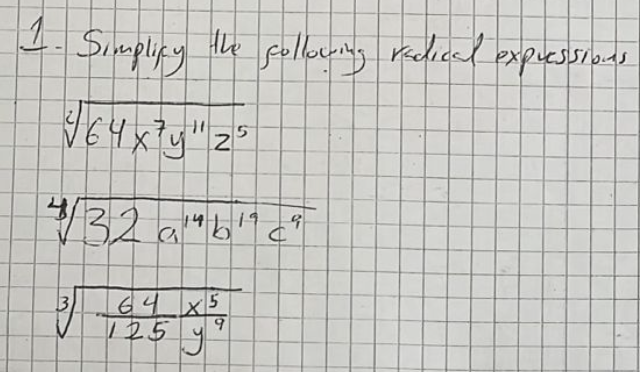 1. Simplify the following radical expressions
∜64x⁷y¹¹z⁵
∜32 a¹⁴b¹⁹c⁹
∛64/125 x⁵/y⁹